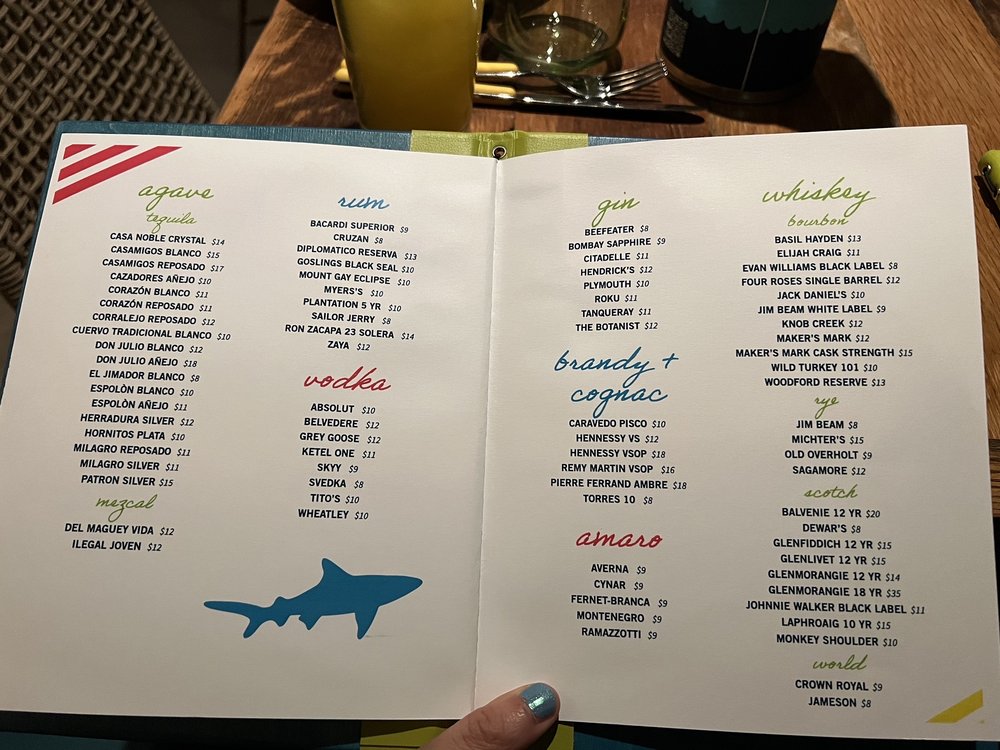 agave
tequila
CASA NOBLE CRYSTAL $14
CASAMIGOS BLANCO $15
CASAMIGOS REPOSADO $17
CAZADORES AÑEJO $10
CORAZÓN BLANCO $11
CORAZÓN REPOSADO $11
CORRALEJO REPOSADO $12
CUERVO TRADICIONAL BLANCO $10
DON JULIO BLANCO $12
DON JULIO AÑEJO $18
EL JIMADOR BLANCO $8
ESPOLÒN BLANCO $10
ESPOLÒN AÑEJO $11
HERRADURA SILVER $12
HORNITOS PLATA $10
MILAGRO REPOSADO $11
MILAGRO SILVER $11
PATRON SILVER $15
mezcal
DEL MAGUEY VIDA $12
ILEGAL JOVEN $12
rum
BACARDI SUPERIOR $9
CRUZAN $8
DIPLOMATICO RESERVA $13
GOSLINGS BLACK SEAL $10
MOUNT GAY ECLIPSE $10
MYERS'S $10
PLANTATION 5 YR $10
SAILOR JERRY $8
RON ZACAPA 23 SOLERA $14
ZAYA $12
vodka
ABSOLUT $10
BELVEDERE $12
GREY GOOSE $12
KETEL ONE $11
SKYY $9
SVEDKA $8
TITO'S $10
WHEATLEY $10
gin
BEEFEATER $8
BOMBAY SAPPHIRE $9
CITADELLE $11
HENDRICK'S $12
PLYMOUTH $10
ROKU $11
TANQUERAY $11
THE BOTANIST $12
brandy +
cognac
CARAVEDO PISCO $10
HENNESSY VS $12
HENNESSY VSOP $18
REMY MARTIN VSOP $16
PIERRE FERRAND AMBRE $18
TORRES 10 $8
amaro
AVERNA $9
CYNAR $9
FERNET-BRANCA $9
MONTENEGRO $9
RAMAZZOTTI $9
whiskey
bourbon
BASIL HAYDEN $13
ELIJAH CRAIG $11
EVAN WILLIAMS BLACK LABEL $8
FOUR ROSES SINGLE BARREL $12
JACK DANIEL'S $10
JIM BEAM WHITE LABEL $9
KNOB CREEK $12
MAKER'S MARK $12
MAKER'S MARK CASK STRENGTH $15
WILD TURKEY 101 $10
WOODFORD RESERVE $13
rye
JIM BEAM $8
MICHTER'S $15
OLD OVERHOLT $9
SAGAMORE $12
scotch
BALVENIE 12 YR $20
DEWAR'S $8
GLENFIDDICH 12 YR $15
GLENLIVET 12 YR $15
GLENMORANGIE 12 YR $14
GLENMORANGIE 18 YR $35
JOHNNIE WALKER BLACK LABEL $11
LAPHROAIG 10 YR $15
MONKEY SHOULDER $10
world
CROWN ROYAL $9
JAMESON $8